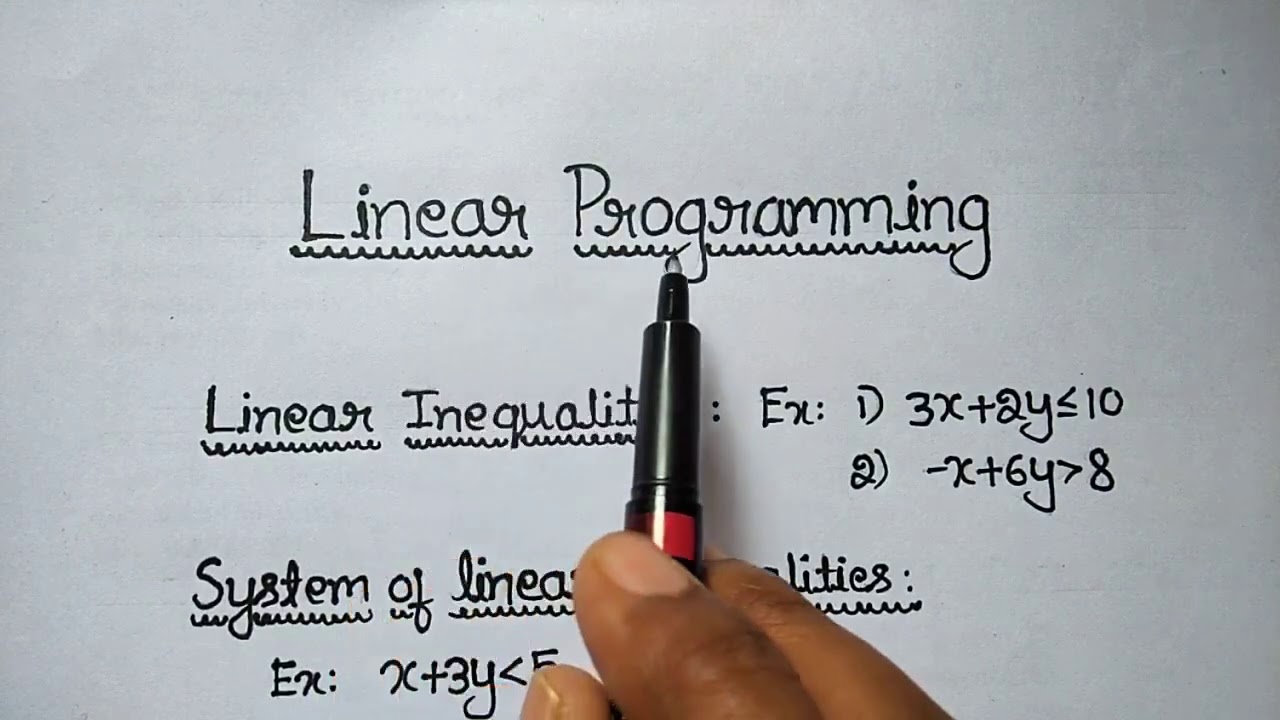 Linear Programming
Linear Inequalit : Ex: 1) 3x+2y≤10
2) -x+6y>8
System of linea alities:
Ex: x+3y<5